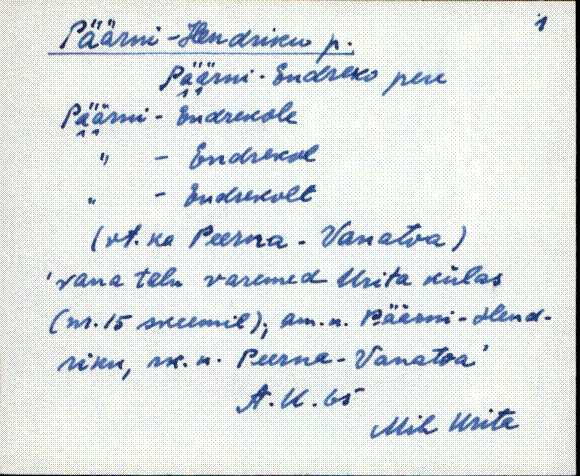 1
Päärni-Hendriku p.
Päärni-Endreko pere
Päärni - Endrekole
" - Endrekol
" - Endrekolt
(vt. ka Peerna - Vanatoa)
'vana talu varemed Urita külas
(nr. 15 skeemil), am. n. Päärni-Hend-
riku, rk. n. Peerna-Vanatoa'
A.U.65
Mih Urita